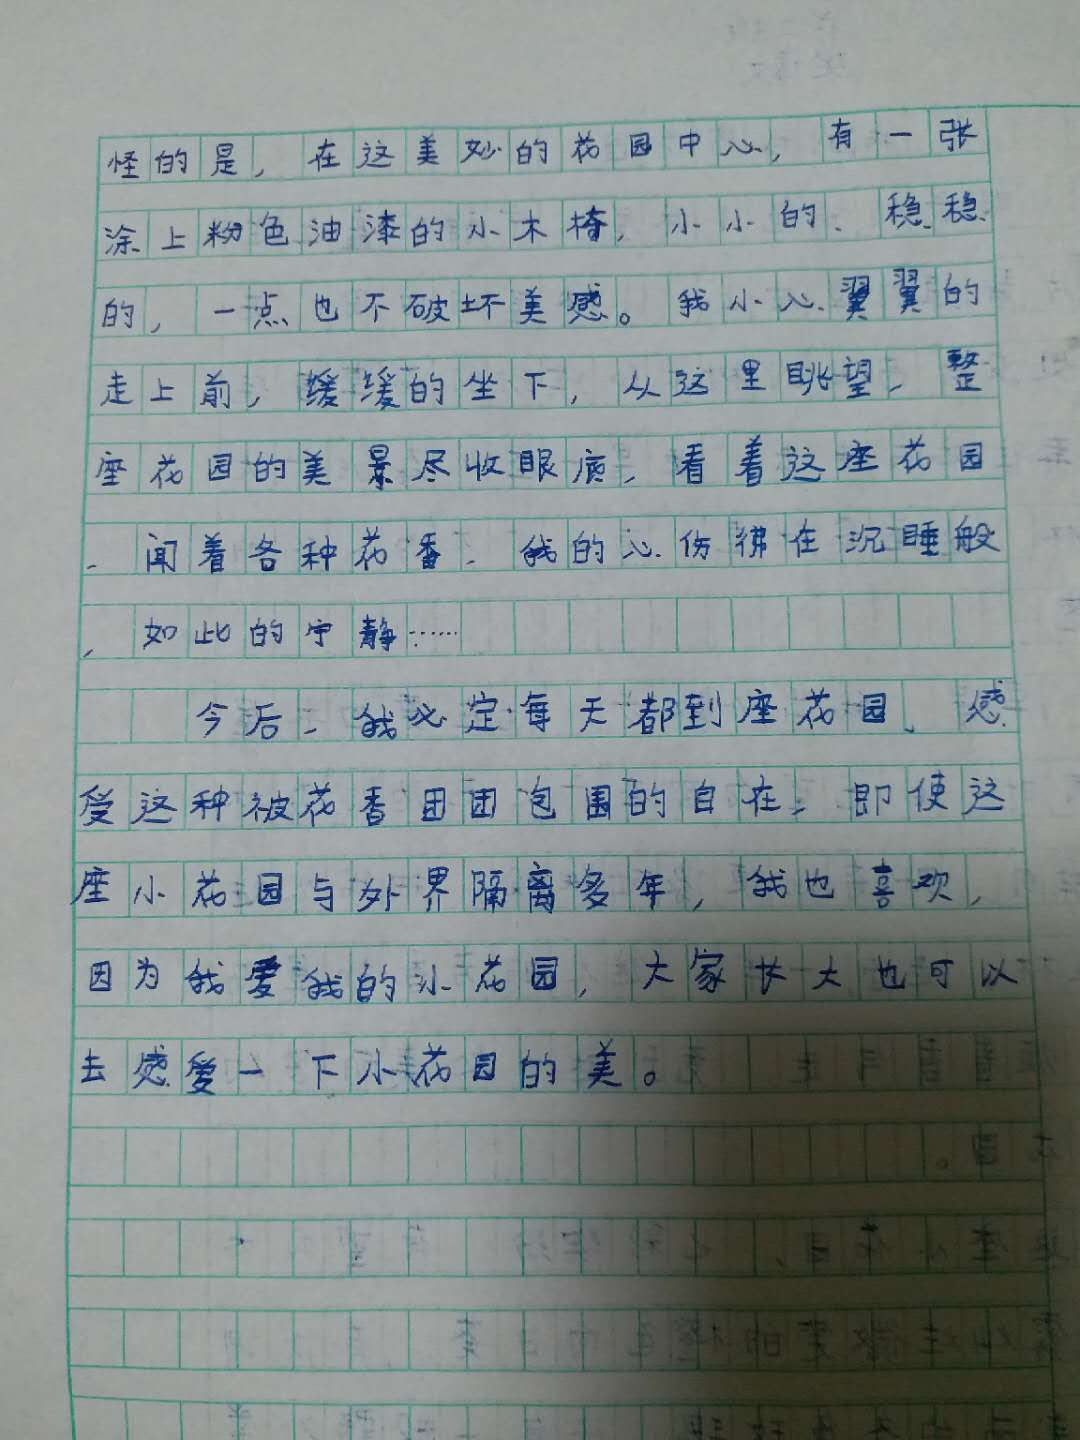 怪的是，在这美妙的花园中心，有一张
涂上粉色油漆的小木椅，小小的、稳稳
的，一点也不破坏美感。我小心翼翼的
走上前，缓缓的坐下，从这里眺望，整
座花园的美景尽收眼底，看着这座花园
、闻着各种花香、我的心仿彿在沉睡般
，如此的宁静……
今后、我必定每天都到座花园、感
受这种被花香团团包围的自在，即使这
座小花园与外界隔离多年，我也喜欢，
因为我爱我的小花园，大家长大也可以
去感爱一下小花园的美。